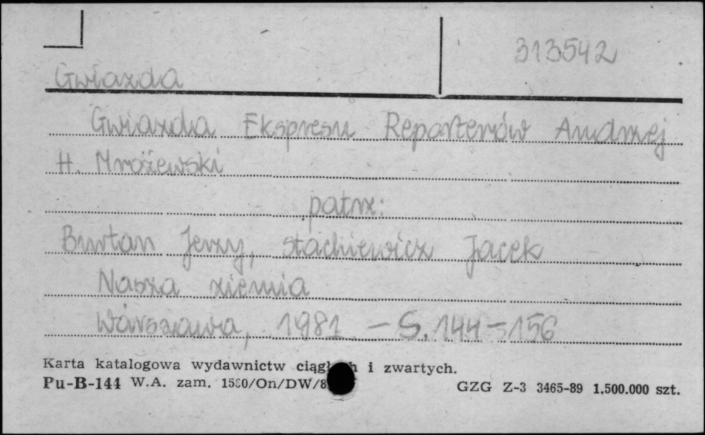 313542
Gwiazda
Gwiazda Ekspresu Reporterów Andrzej
H. Mrożewski
patrz:
Burtan Jerzy, Stachiewicz Jacek
Nasza ziemia
Warszawa, 1981 - S. 144-156
Karta katalogowa wydawnictw ciągłych i zwartych.
Pu-B-144 W.A. zam. 1580/On/DW/8
GZG Z-3 3465-89 1.500.000 szt.